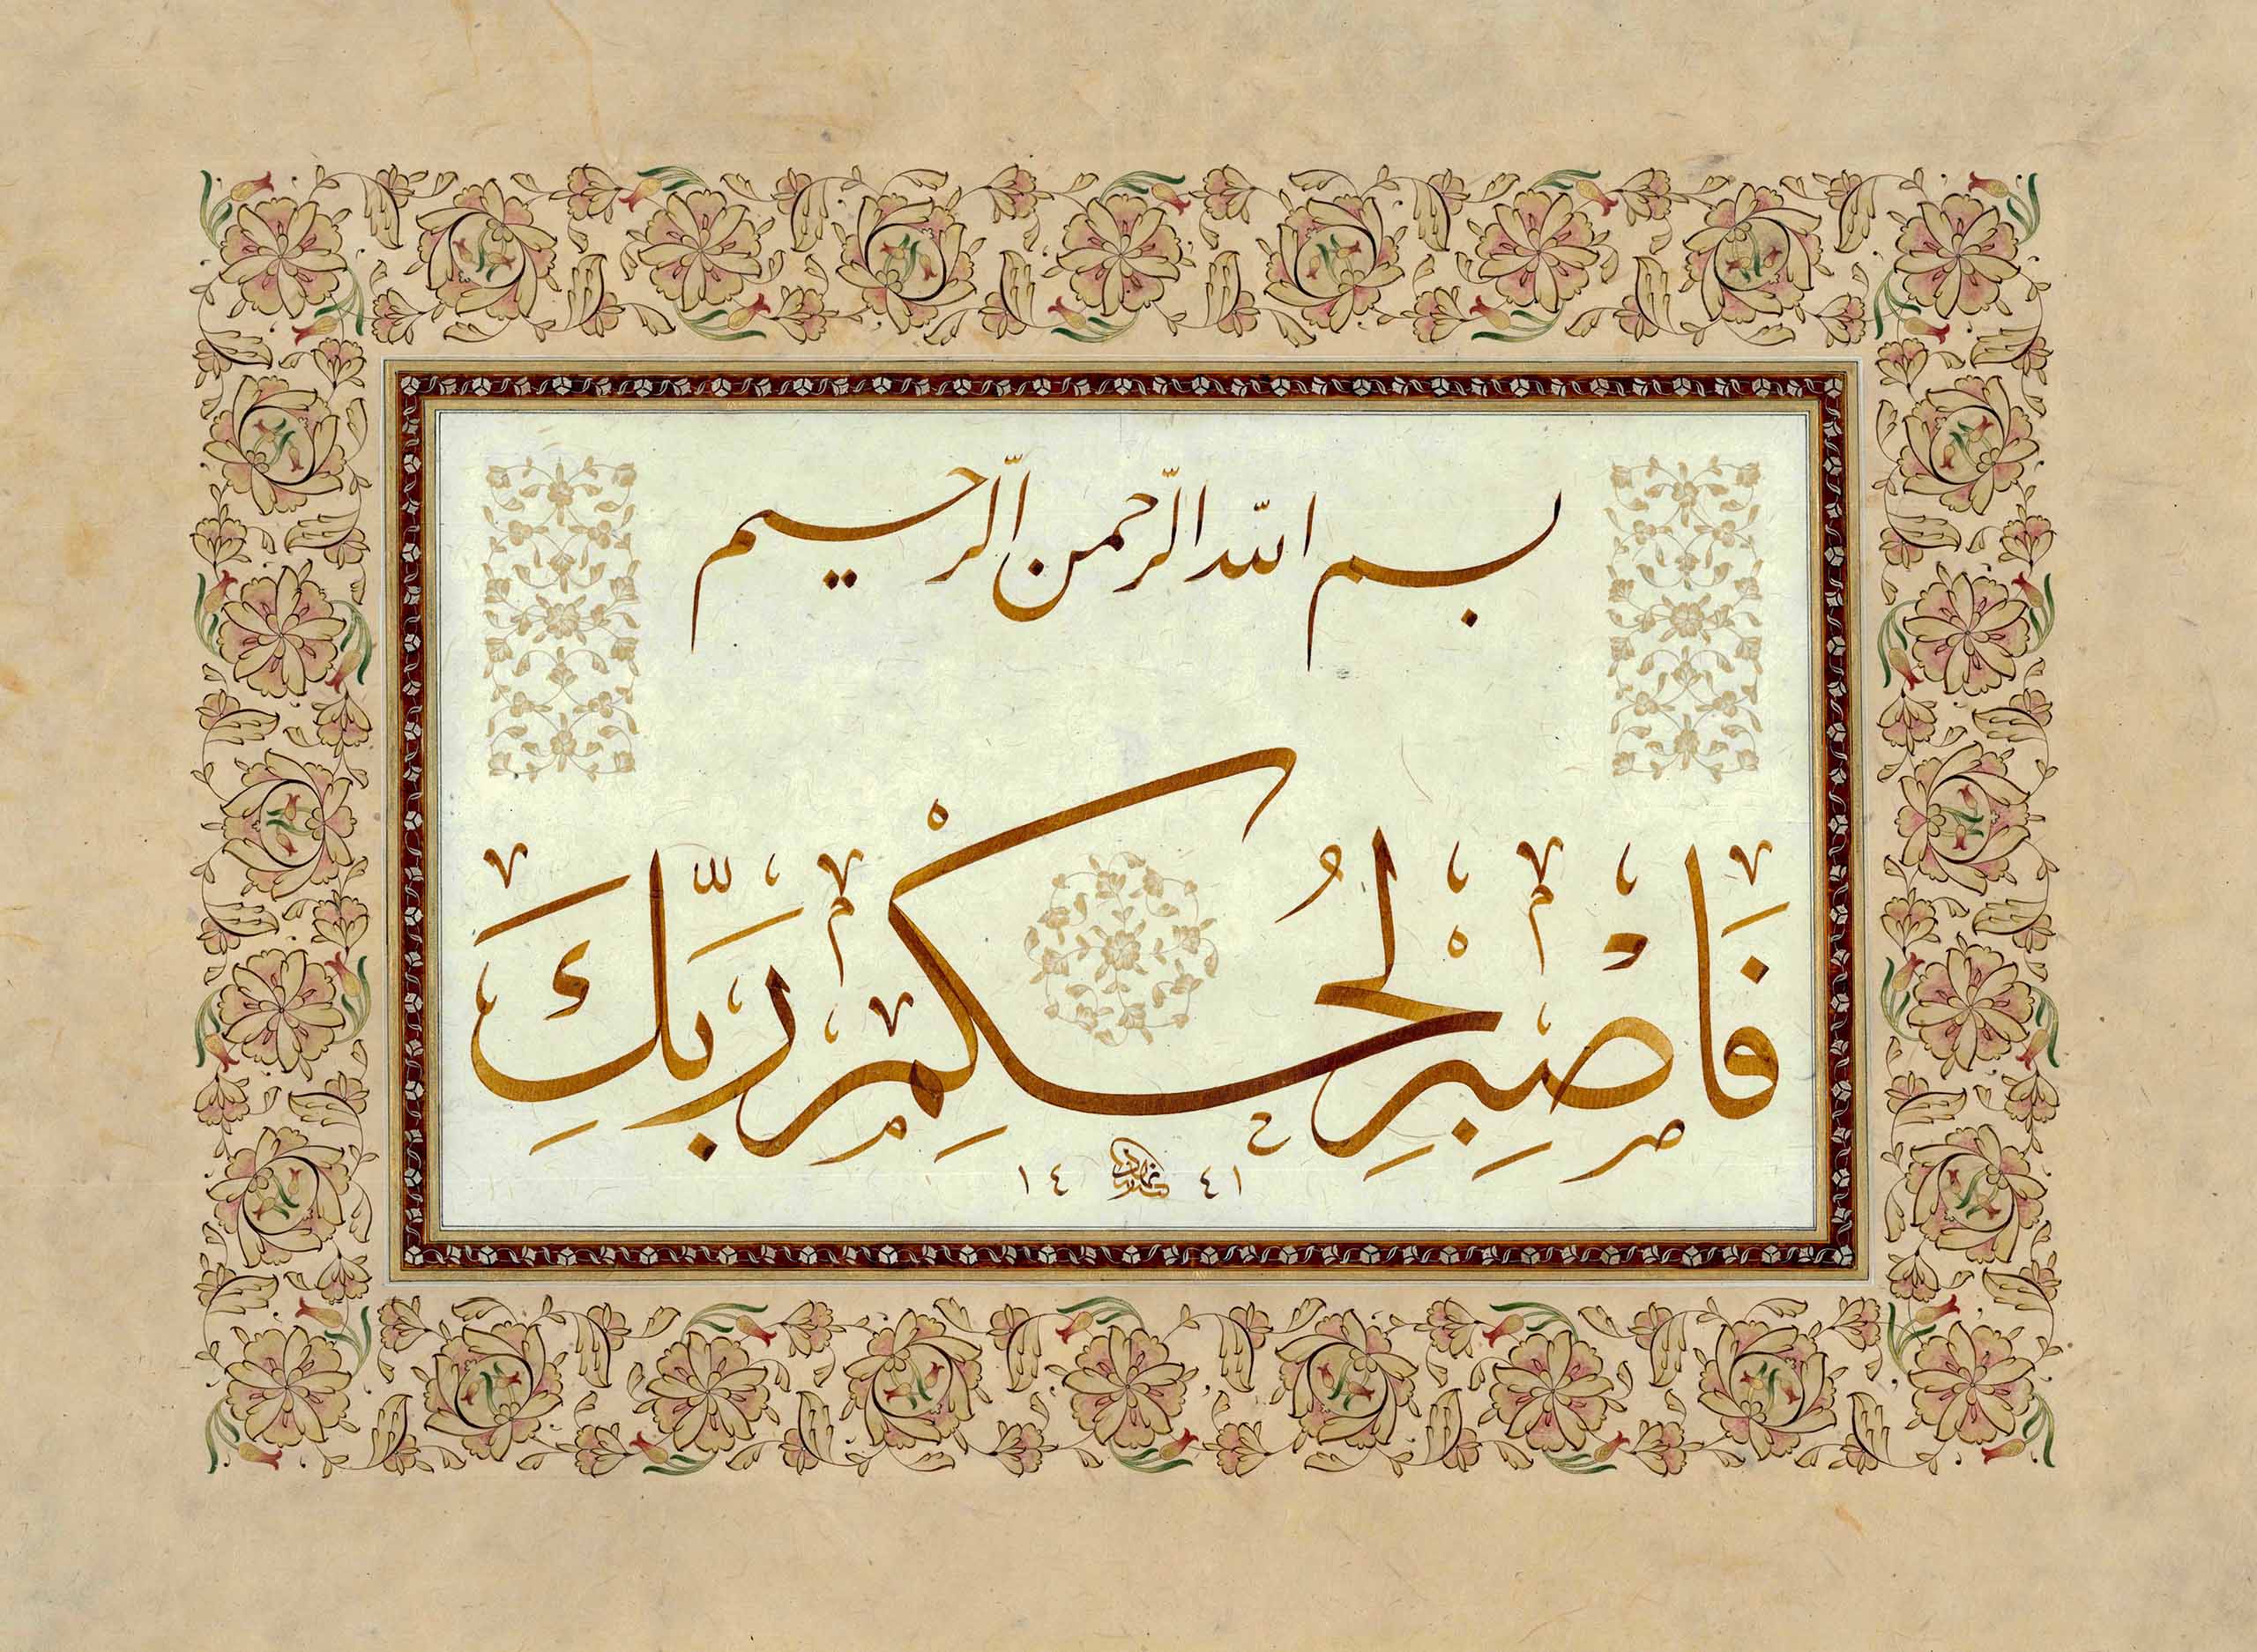 بسم الله الرحمن الرحيم
فَاصْبِرْ لِحُكْمِ رَبِّكَ
١٤ ٤١